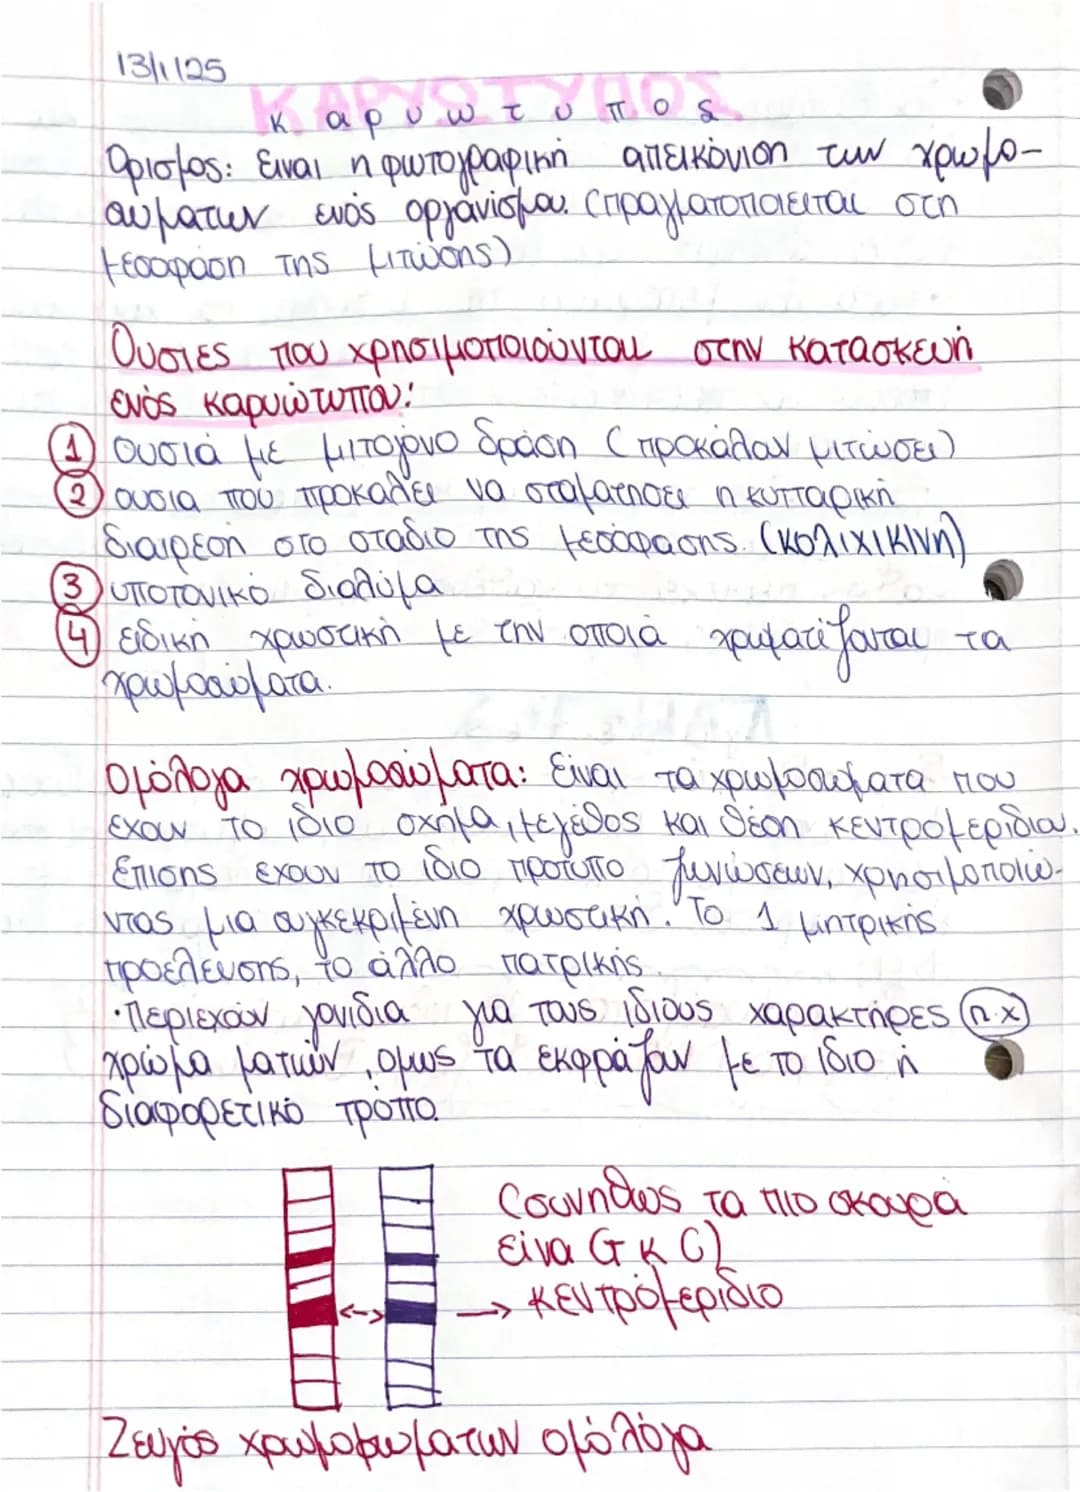 13/1/25
ΚΑΡΥΩΤΥΠΟΣ
καρυωτυπος
Ορισμος: Ειναι η φωτογραφική απεικόνιση των χρωμο-
σωματων ενός οργάνισμου. (πραγματοποιειται στη
μεσοφαση της μιτώσης)
Ουσιες που χρησιμοποιούνται στην κατασκευή
ενός καρυώτυπου:
1 ουσιά με μιτογόνο δράση (προκάλουν μιτώσει)
2 ουσια που προκαλέι να σταματησει η κυτταρική
διαιρεση στο σταδιο της μεσόφασης. (κολιχικινη)
3 υποτονικό διαλύμα
4 ειδική χρωστική με την οποιά χρωματίζονται τα
χρωμοσώματα.
Ομόλογα χρωμοσώματα: Είναι τα χρωμοσωματα που
εχουν το ίδιο σχημα, μεγέθος και θέση κεντρομεριδιου.
Επισης εχουν το ιδιο προτυπο ζωνώσεων, χρησιμοποιώ-
ντας μια συγκεκριμένη χρωστική. Το 1 μητρικής
προέλευσης, το άλλο πατρικής.
·Περιεχούν γονιδια για τους ιδιους χαρακτήρες π.χ
χρώμα ματιών, ομως τα εκφράζουν με το ίδιο ή
διαφορετικό τρόπο.
(συνηθως τα πιο σκουρα
είναι G κ C)
<-> → κεντρομεριδιο
Ζευγός χρωμοσωματων ομόλόγα